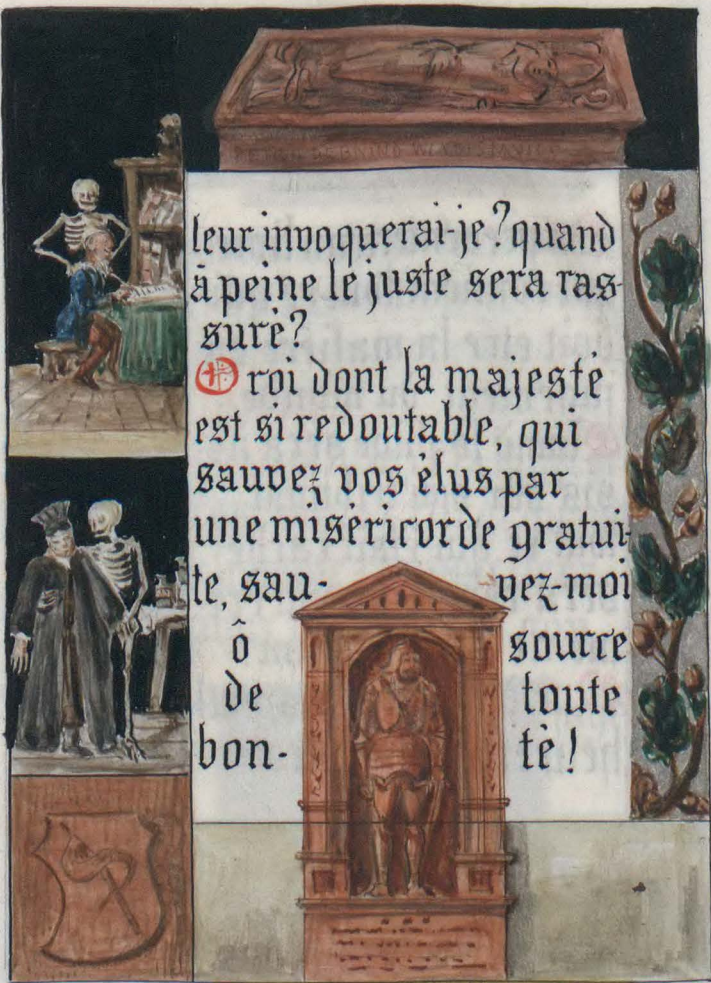 leur invoquerai-je? quand
à peine le juste sera ras-
surè?
O roi dont la majestè
est si redoutable, qui
sauvez vos èlus par
une misèricorde gratui-
te, sau- vez-moi
ô source
de toute
bon- tè!